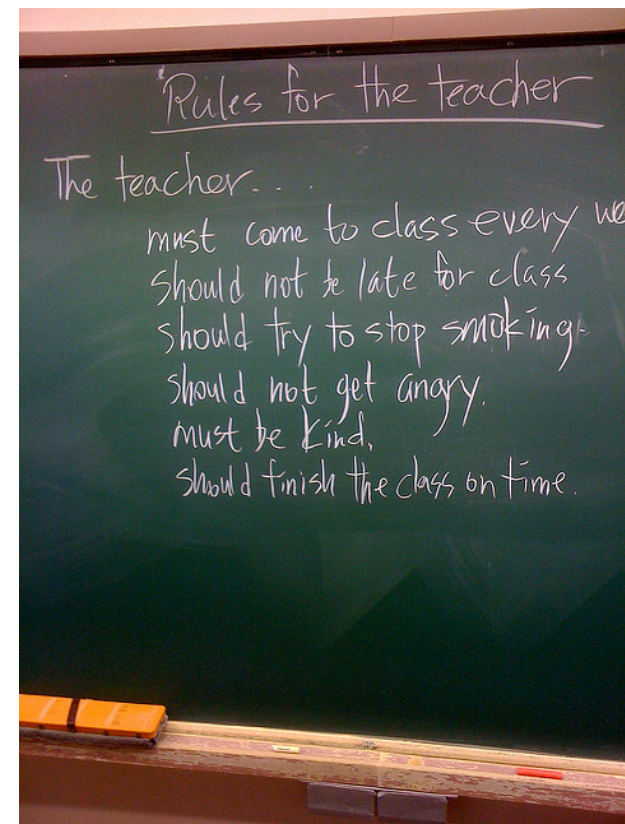 Rules for the teacher
The teacher....
must come to class every we
should not be late for class
should try to stop smoking.
should not get angry.
must be kind.
should finish the class on time.